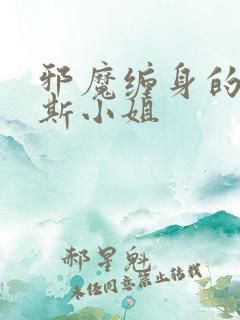 邪魔缠身的
斯小姐
郝星魁
未经同意禁止转载